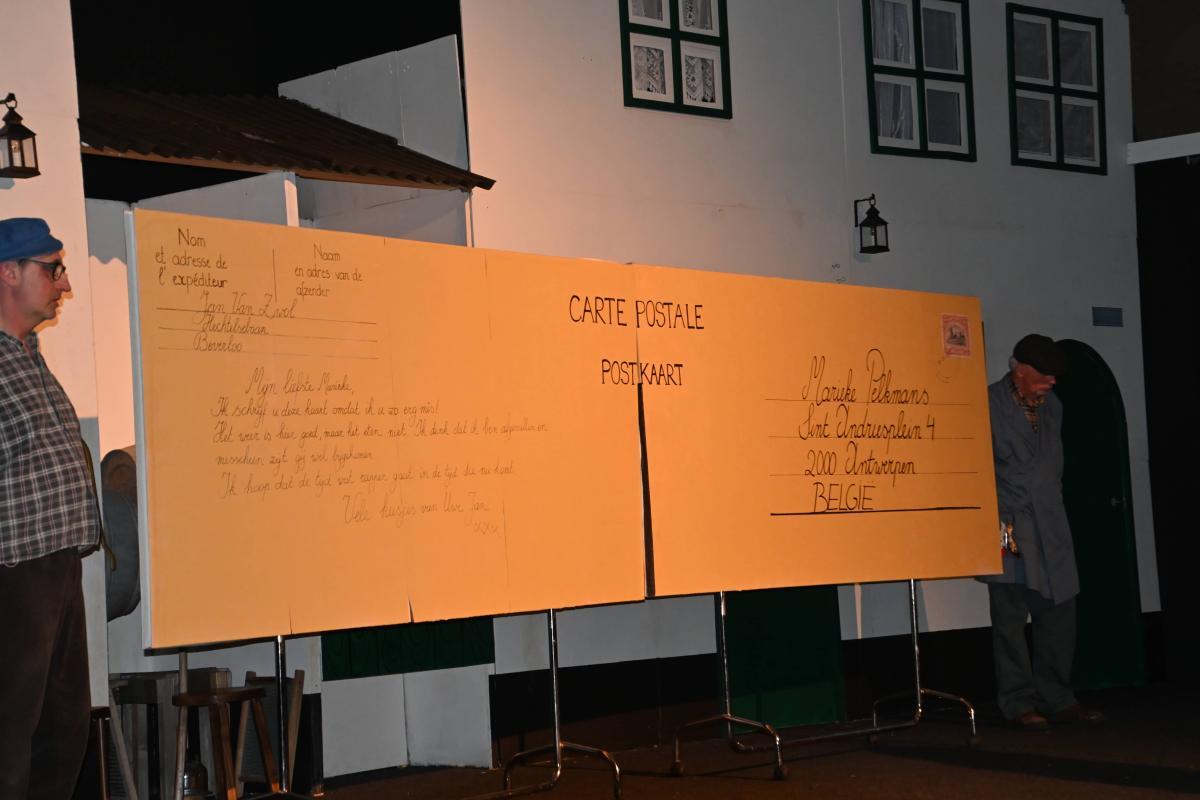 Nom
et adresse de
l'expéditeur
Naam
en adres van de
afzender
Jan Van Zwol
Hechtelsebaan
Beverloo
CARTE POSTALE
POSTKAART
Mijn liefste Marieke,
Ik schrijf u deze kaart omdat ik u zo erg mis!
Het weer is hier goed, maar het eten niet. Ik denk dat ik ben afgevallen en
misschien zijt gij wel bygekomen.
Ik hoop dat de tijd wat rapper gaat in de tijd die nu komt.
Vele kusjes van Uwe Jan
xxx
Marieke Pelkmans
Sint Andriesplein 4
2000 Antwerpen
BELGIË